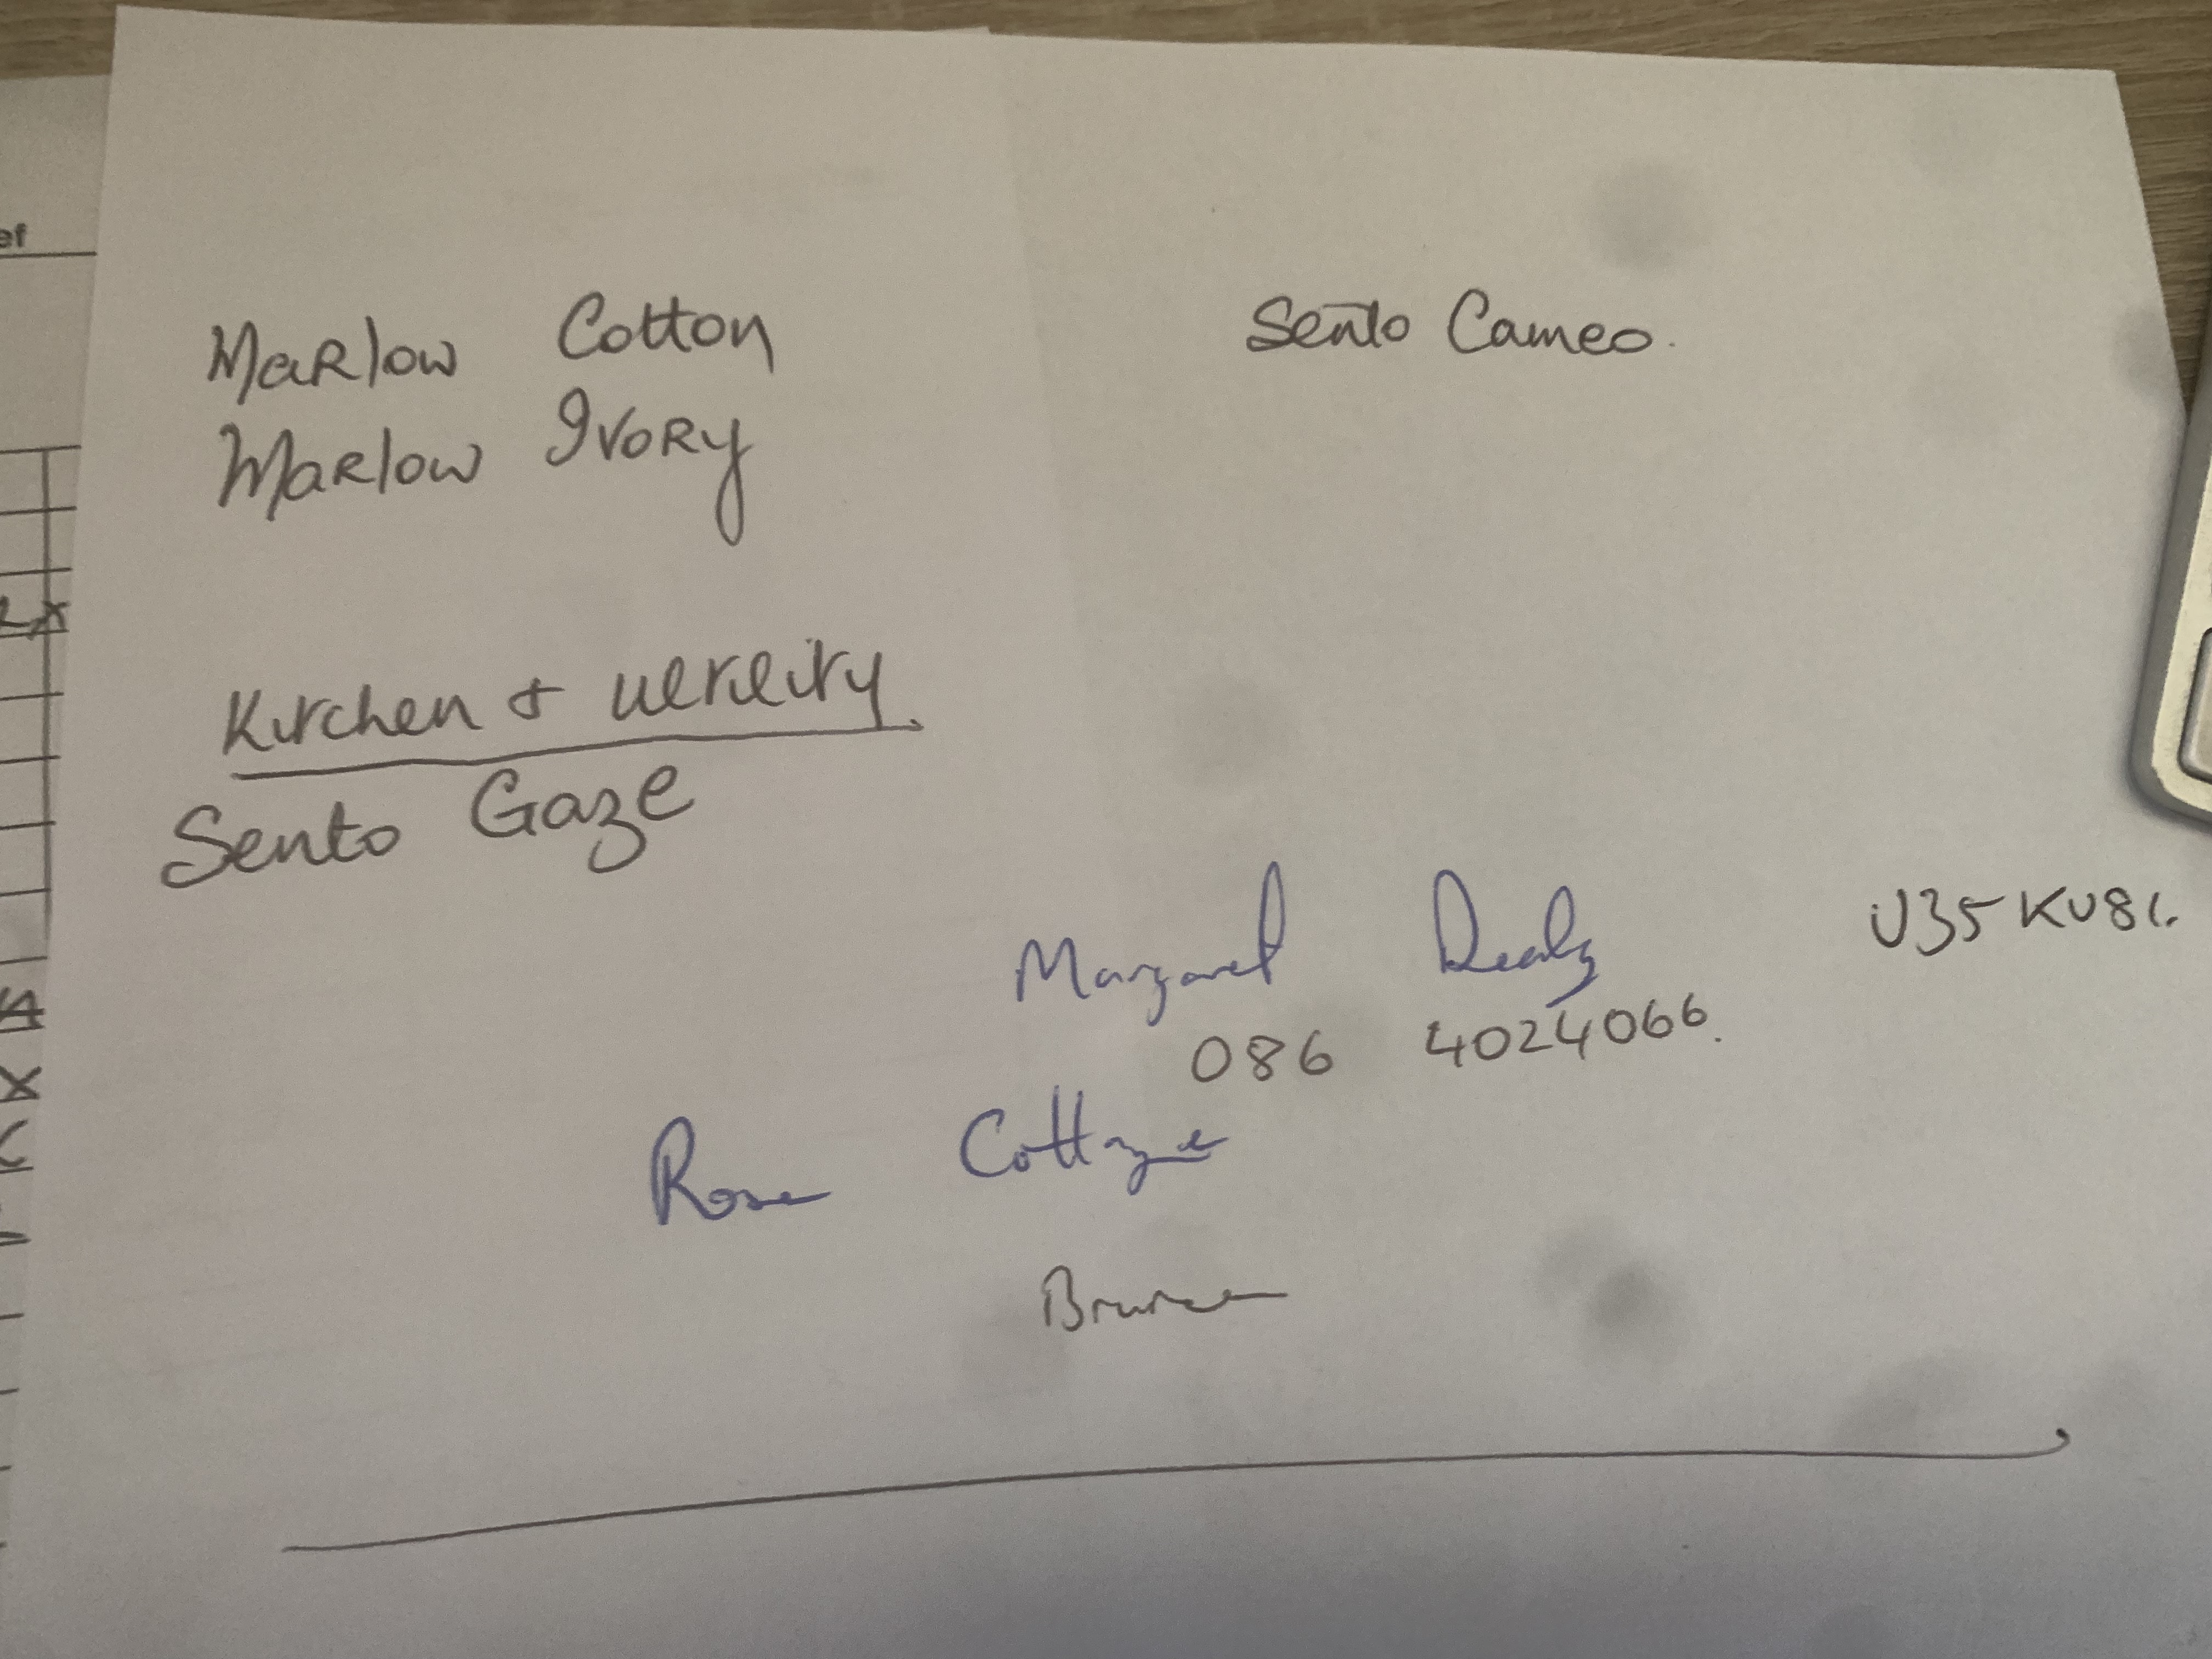 Marlow Cotton
Marlow Ivory
Sento Cameo.
Kitchen & utility
Sento Gaze
Margaret
U35KU8
086 4024066.
Rose Cottage